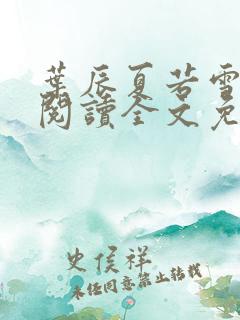 葉辰夏若雪
閱讀全文免
史侯祥
未經同意禁止轉載